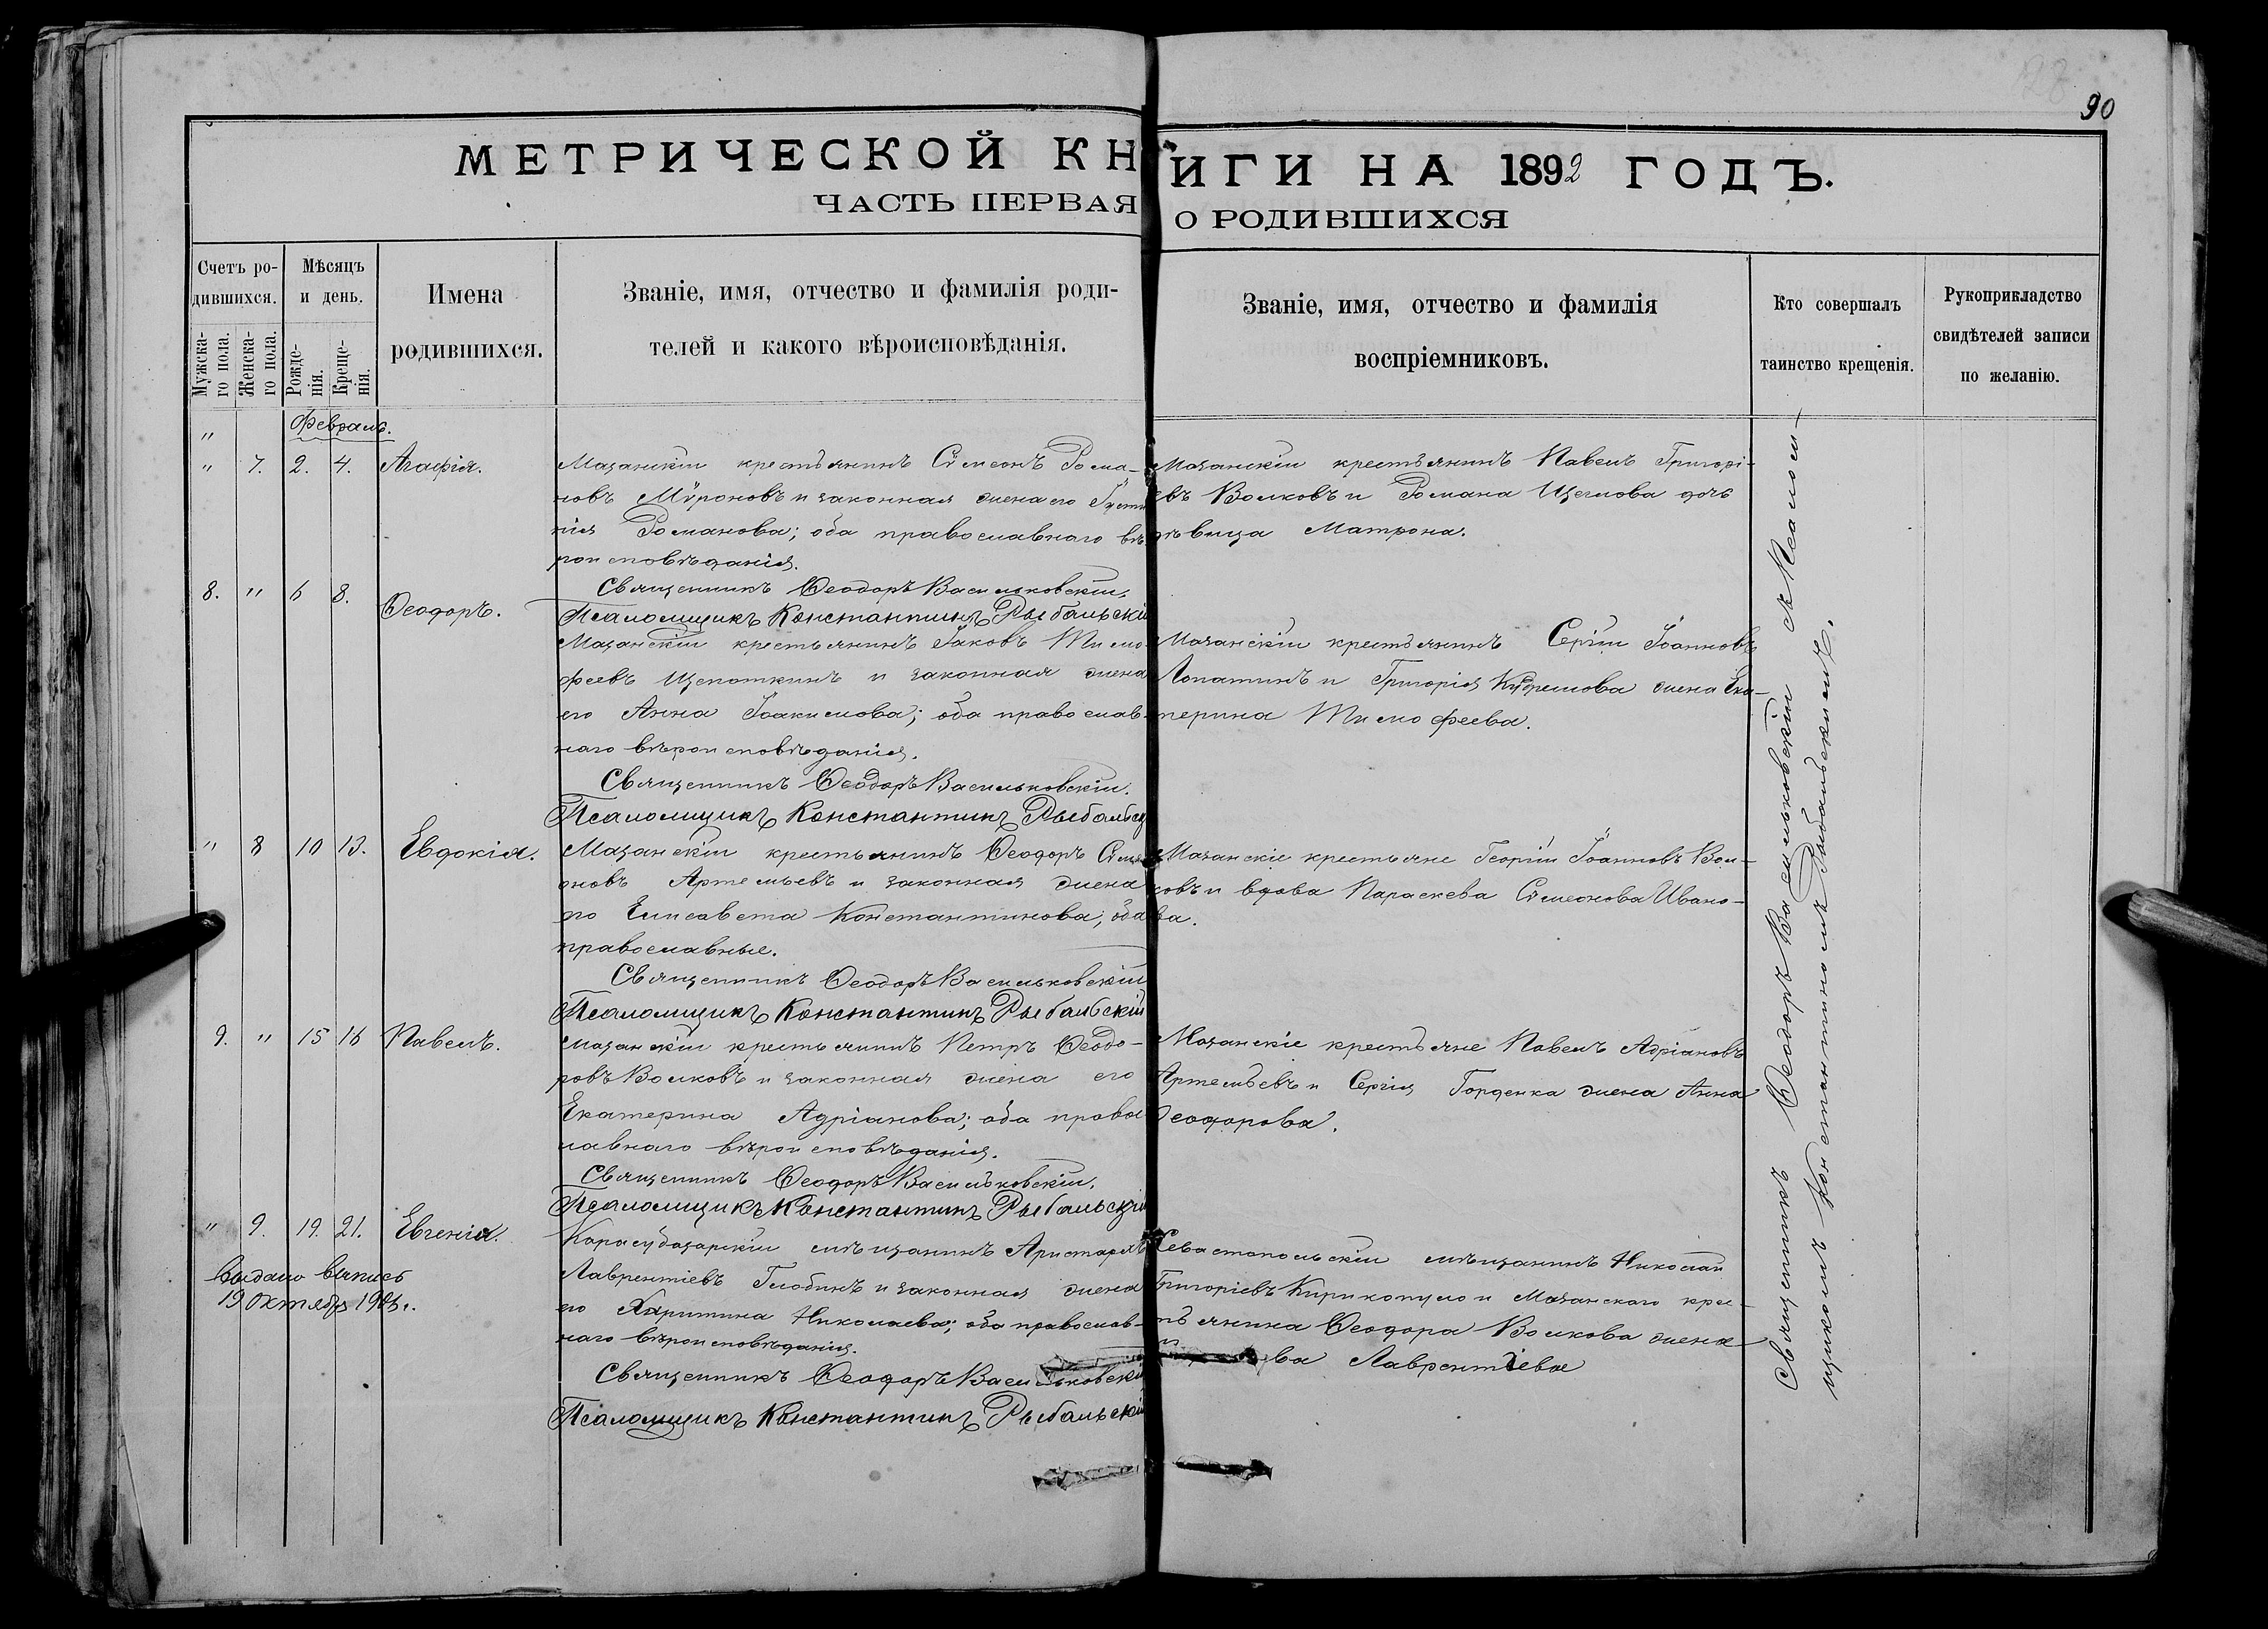 90
МЕТРИЧЕСКОЙ КНИГИ НА 1892 ГОДЪ.
ЧАСТЬ ПЕРВАЯ О РОДИВШИХСЯ
Счетъ ро-
дившихся.
Мужска-
го пола.
Женска-
го пола.
Мѣсяцъ
и день.
Рожде-
нія.
Креще-
нія.
Имена
родившихся.
Званіе, имя, отчество и фамилія роди-
телей и какого вѣроисповѣданія.
Званіе, имя, отчество и фамилія
воспріемниковъ.
Кто совершалъ
таинство крещенія.
Рукоприкладство
свидѣтелей записи
по желанію.
"
Февраль.
" 7. 2. 4. Агафія.
Мазанскій крестьянинъ Симеонъ Рома-
новъ Мѵроновъ и законная жена его
нія Романова; оба православнаго вѣ-
роисповѣданія.
Священникъ Ѳеодоръ Васильковскій.
Псаломщикъ Константинъ Рыбальскій
Мазанскій крестьянинъ Павелъ Григорі-
евъ Волковъ и Романа Щеглова дочь
дѣвица Матрона.
8. " 6 8. Ѳеодоръ.
Мазанскій крестьянинъ Іаковъ Тимо-
феевъ Щепоткинъ и законная жена
его Анна Іоакимова; оба православ-
наго вѣроисповѣданія.
Священникъ Ѳеодоръ Васильковскій.
Псаломщикъ Константинъ Рыбальск
Мазанскій крестьянинъ Сергій Іоанновъ
Лопатинъ и Григорія жена Ека-
терина Тимофеева.
" 8 10 13. Евдокія.
Мазанскій крестьянинъ Ѳеодоръ Симе-
оновъ Артемьевъ и законная жена
его Елисавета Константинова; оба
православные.
Священникъ Ѳеодоръ Васильковскій
Псаломщикъ Константинъ Рыбальскій
Мазанскіе крестьяне Георгій Іоанновъ Вол-
ковъ и вдова Параскева Симеонова Ивано-
ва.
9. " 15 16 Павелъ.
Мазанскій крестьянинъ Петръ Ѳеодо-
ровъ Волковъ и законная жена его
Екатерина Адріанова; оба правос
лавнаго вѣроисповѣданія.
Священникъ Ѳеодоръ Васильковскій.
Псаломщикъ Константинъ Рыбальскій
Мазанскіе крестьяне Павелъ Адріановъ
Артемьевъ и Сергія Горденка жена Анна
Ѳеодорова.
" 9. 19. 21. Евгенія.
выдана выпись
19 Октября 1905 г.
Карасубазарскій мѣщанинъ Аристархъ
Лаврентіевъ Глобинъ и законная жена
его Харитина Николаева; оба православ-
наго вѣроисповѣданія.
Священникъ Ѳеодоръ Васильковскій
Псаломщикъ Константинъ Рыбальскій
Севастопольскій мѣщанинъ Николай
Григоріевъ Кирикопуло и Мазанскаго крес-
тьянина Ѳеодора Волкова жена
ва Лаврентіева
Священникъ Ѳеодоръ Васильковскій съ Псалом-
щикомъ Константиномъ Рыбальскимъ.